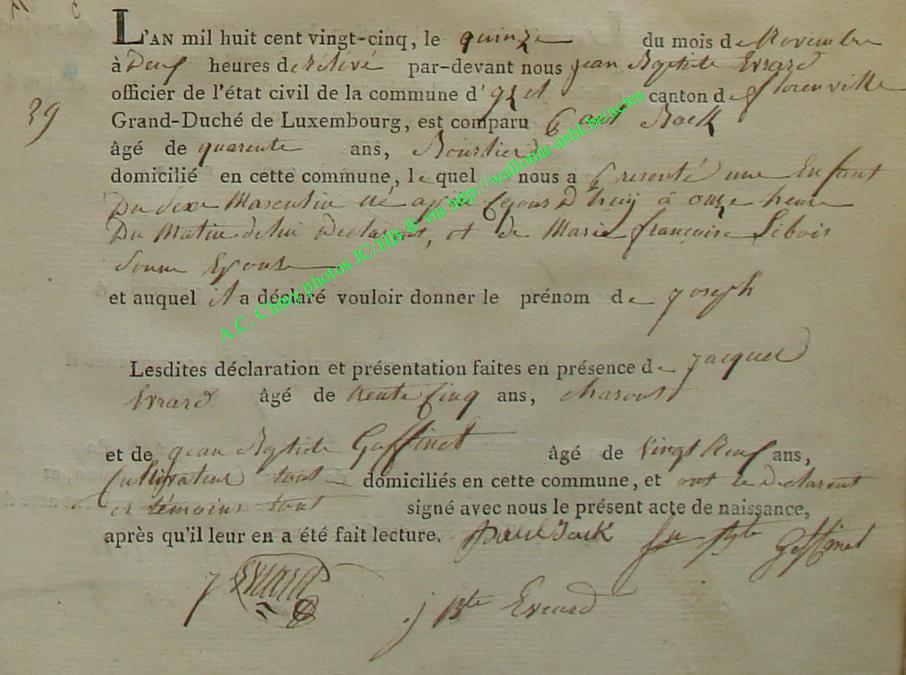 39
L'AN mil huit cent vingt-cinq, le quinze du mois de Novembre
à Deuf heures de Relivé par-devant nous jean Bptiste Evrard
officier de l'état civil de la commune d'Izel canton de florenville
Grand-Duché de Luxembourg, est comparu Paul Back
âgé de quarente ans,
domicilié en cette commune, lequel nous a Presenté une Enfant
Du Sexe Masculin né à onze heure
Du Matin de lui Declarant, et de Marie françoise Libois
Sonne Epouse
et auquel il a déclaré vouloir donner le prénom de joseph
Lesdites déclaration et présentation faites en présence de jacques
Evrard âgé de trente Cinq ans, charons
et de jean Bptiste Goffinet âgé de Vingt Neuf ans,
Cultivateur tout domiciliés en cette commune, et ont le Declarent
et témoins tout signé avec nous le présent acte de naissance,
après qu'il leur en a été fait lecture. paul Back jn Bte Goffinet
J Evrard
j Bte Evrard
A.C. Chiny photos JC/HB® via http://wallonia-asbl.be/actes